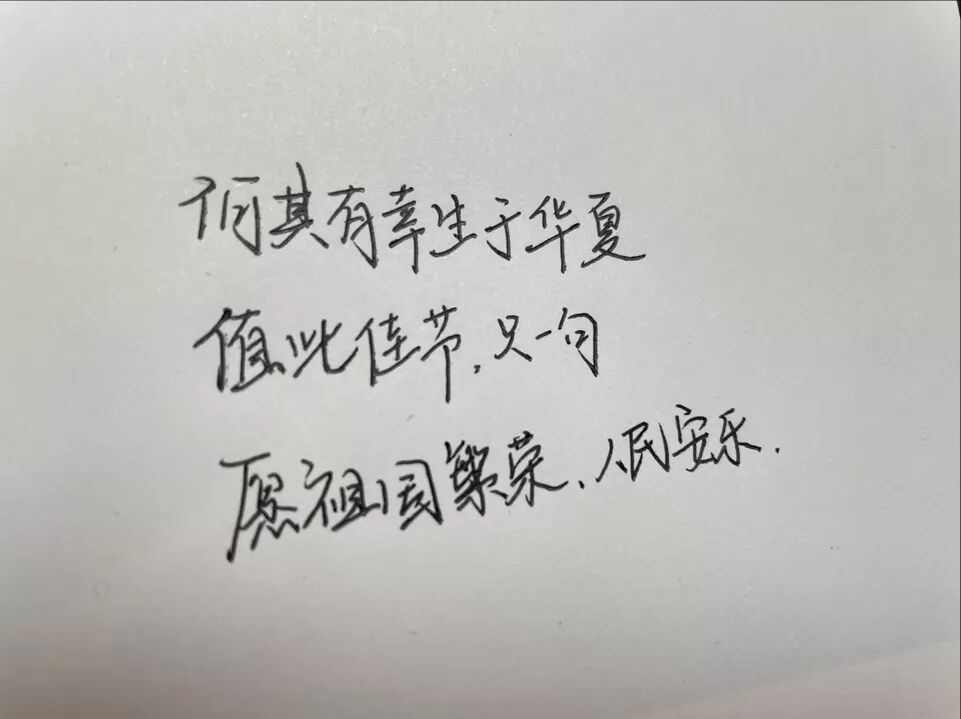 何其有幸生于华夏
值此佳节，只一句
愿祖国繁荣、人民安乐.